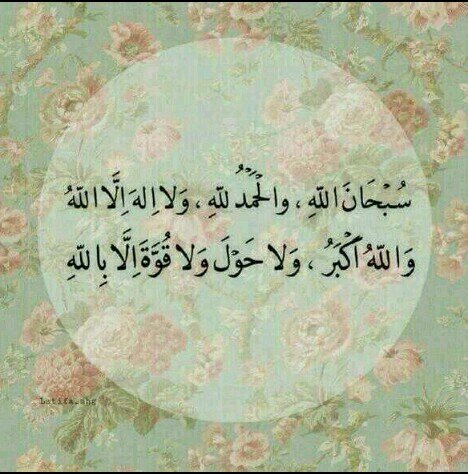 سُبْحَانَ اللّٰهِ ، والْحَمْدُ للّٰهِ ، وَلا اِلهَ اِلَّا اللّٰهُ
وَاللّٰهُ اَكْبَرُ ، وَلا حَوْلَ وَلا قُوَّةَ اِلَّا بِاللّٰهِ
Latifa.shg